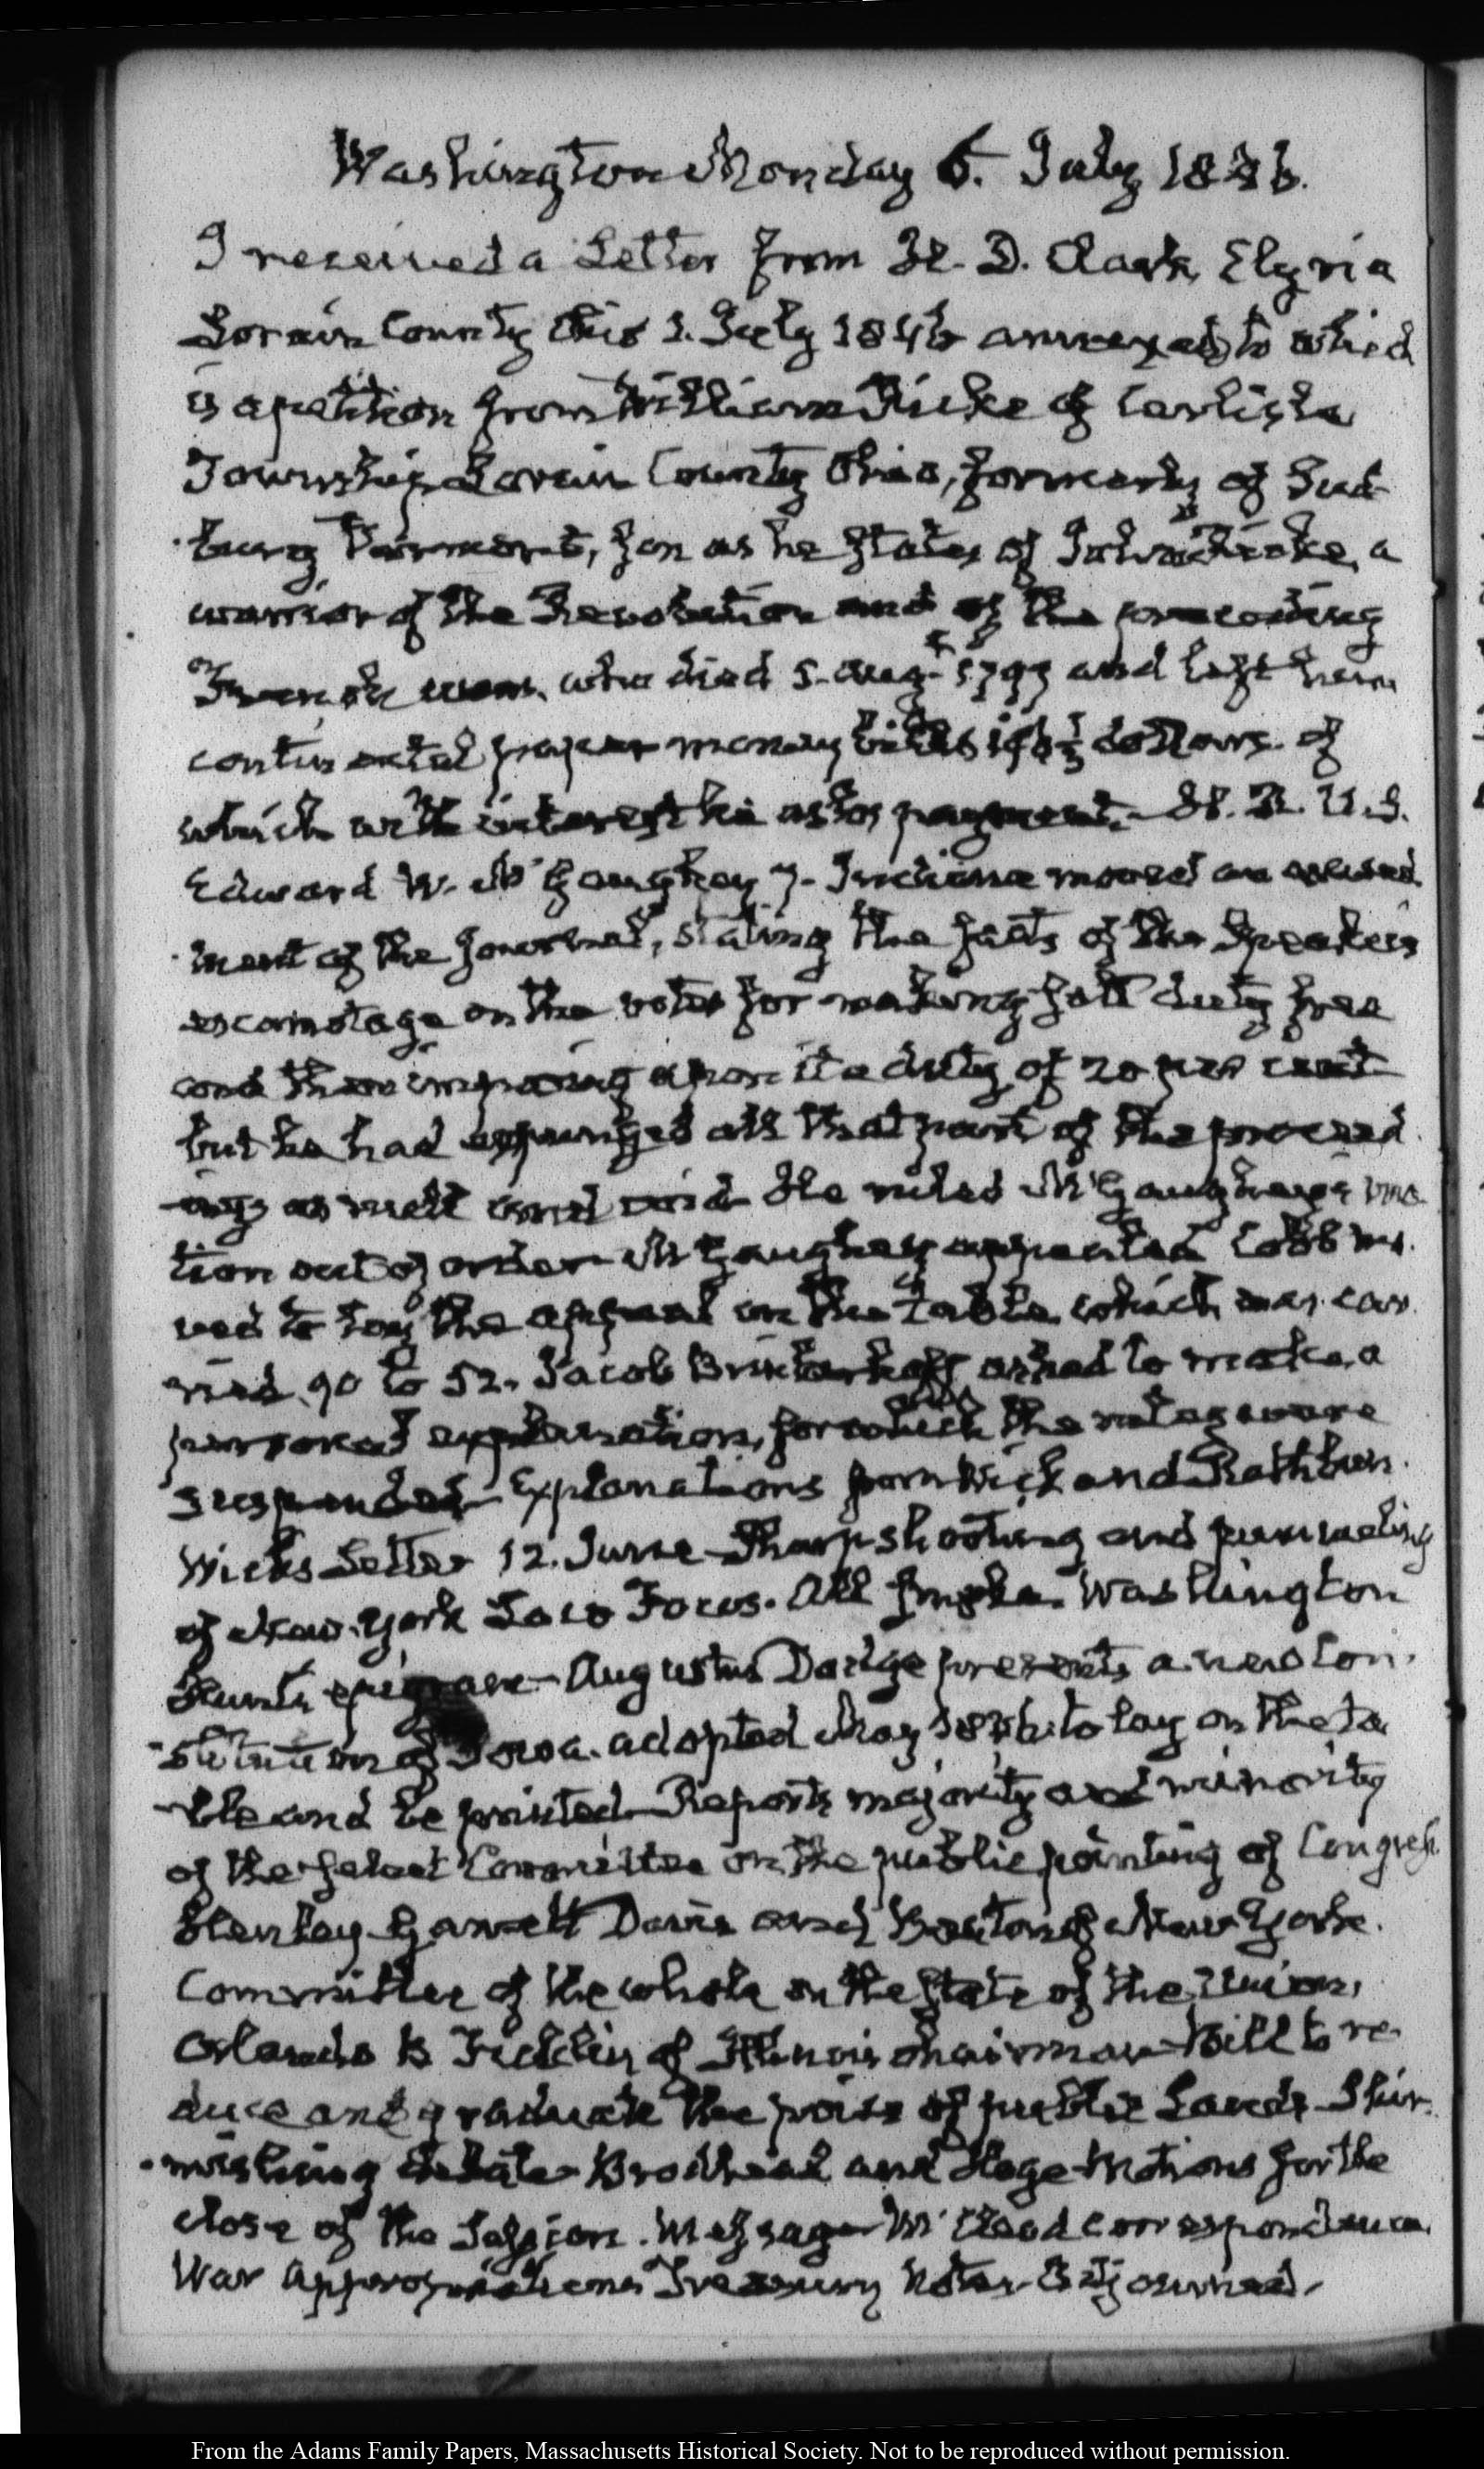 Washington Monday 6. July 1846.
I received a Letter from H. D. Clark, Elyria
Lorain County Ohio 1. July 1846 annexed to which
is a petition from William Hicke of Carlisle
Township Lorain County Ohio, formerly of Sud-
bury Vermont, son as he states of John Hicke, a
warrior of the Revolution and of the preceding
French war, who died 5. Aug. 1797 and left him
continental paper money bills dollars of
which with interest he asks payment. H. R. U.S.
Edward W. McGaughey 7. Indiana moved an amend-
ment of the Journal, stating the facts of the Speaker's
on the vote for making salt duty free
and then imposing upon it a duty of 20 per cent
but he had expunged all that part of the proceed-
ings as null and void. He ruled McGaughey's mo-
tion out of order. McGaughey appealed Cobb mo-
ved to lay the appeal on the table, which was car-
ried. 90 to 52. Jacob Brinkerhoff asked to make a
personal explanation, for which the rules were
suspended. Explanations from Wick and Rathbun.
Wicks Letter 12. June Sharp shooting and pummeling
of New-York Loco Focos. All smoke. Washington
Hunt's epigram. Augustus Dodge presents a new Con-
stitution of Iowa. adopted May 1846 to lay on the ta-
ble and be printed. Reports majority and minority
of the Select Committee on the public printing of Congress
Stanley Garrett Davis and of New York.
Committee of the whole on the State of the Union,
Orlando B Ficklin of Illinois chairman. Bill to re-
duce and graduate the price of public Lands. Skir-
mishing debate. Brodhead and Hoge Motions for the
close of the Session. Message McLeod correspondence.
War Appropriations Treasury Notes. Adjourned.
From the Adams Family Papers, Massachusetts Historical Society. Not to be reproduced without permission.